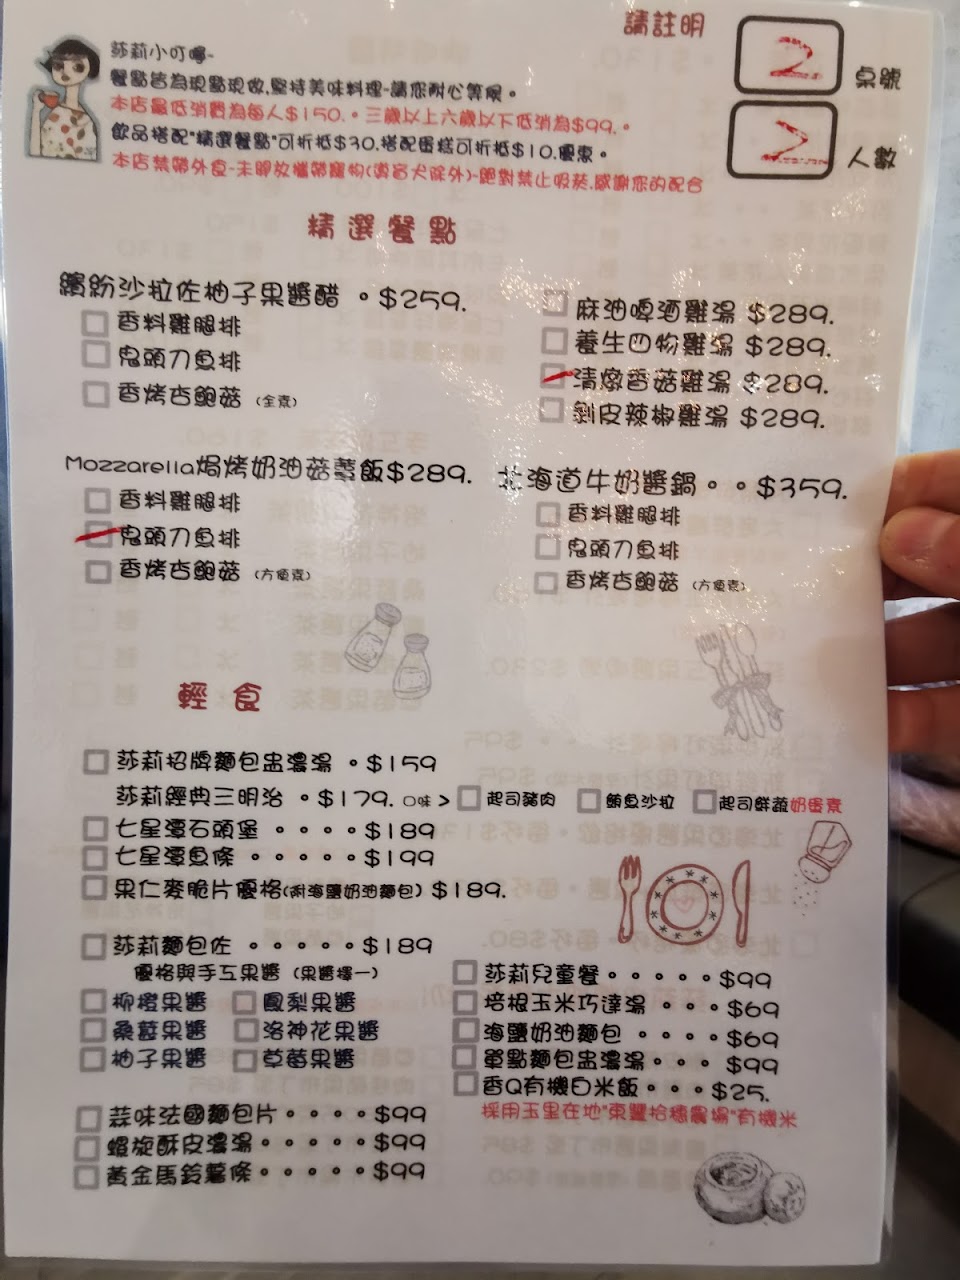 請註明
2 桌號
2 人數
莎莉小叮嚀~
餐點皆為現點現做,堅持美味料理~請您耐心等候。
本店最低消費為每人$150.。三歲以上六歲以下低消為$99.。
飲品搭配"精選餐點"可折抵$30.搭配蛋糕可折抵$10.優惠。
本店禁帶外食~未開放攜帶寵物(導盲犬除外)~絕對禁止吸菸.感謝您的配合
精選餐點
繽紛沙拉佐柚子果醬醋 。$259.
香料雞腿排
鬼頭刀魚排
香烤杏鮑菇 (全素)
麻油啤酒雞湯 $289.
養生四物雞湯 $289.
清燉香菇雞湯 $289.
剝皮辣椒雞湯 $289.
Mozzarella焗烤奶油菇蕈飯$289.
香料雞腿排
鬼頭刀魚排
香烤杏鮑菇 (方便素)
北海道牛奶醬鍋。。$359.
香料雞腿排
鬼頭刀魚排
香烤杏鮑菇 (方便素)
輕食
莎莉招牌麵包盅濃湯 。$159
莎莉經典三明治 。$179. 口味 > 起司豬肉 鮪魚沙拉 起司鮮蔬奶蛋素
七星潭石頭堡 。。。。$189
七星潭魚條 。。。。。$199
果仁麥脆片優格(附海鹽奶油麵包) $189.
莎莉麵包佐 。。。。。$189
優格與手工果醬 (果醬擇一)
柳橙果醬 鳳梨果醬
桑葚果醬 洛神花果醬
柚子果醬 草莓果醬
蒜味法國麵包片。。。。$99
螺旋酥皮濃湯。。。。。$99
黃金馬鈴薯條。。。。。$99
莎莉兒童餐。。。。。$99
培根玉米巧達湯 。。。$69
海鹽奶油麵包 。。。。$69
單點麵包盅濃湯。。。$99
香Q有機白米飯。。。$25.
採用玉里在地"東豐拾穗農場"有機米